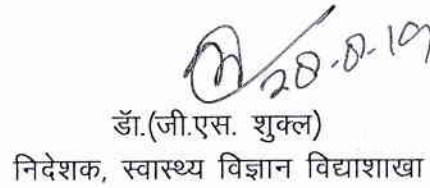 28-8-19
डॉ.(जी.एस. शुक्ल)
निदेशक, स्वास्थ्य विज्ञान विद्याशाखा